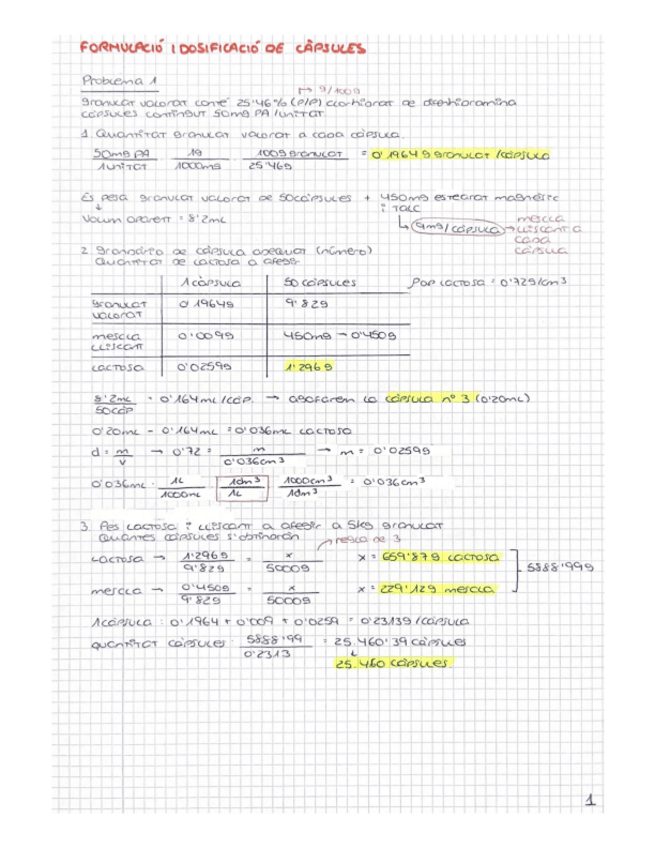 FORMULACIÓ I DOSIFICACIÓ DE CÀPSULES
Problema 1
↦ g/100g
granulat valorat conté 25'46% (P/P) clorhidrat de difenhidramina
càpsules contingut 50mg PA/unitat.
1. Quantitat granulat valorat a cada càpsula.
50mg PA / 1 unitat · 1g / 1000mg · 100g granulat / 25'46g = 0'1964g granulat/càpsula
Es pesa granulat valorat de 50 càpsules + 450mg estearat magnèsic
i talc
↓
Volum aparent = 8'2mL
↳ 9mg/càpsula → mescla lliscant a cada càpsula
2. Grandària de càpsula adequat (número)
Quantitat de lactosa a afegir
1 càpsula 50 càpsules
ρap lactosa = 0'72g/cm³
granulat valorat 0'1964g 9'82g
mescla lliscant 0'009g 450mg → 0'450g
lactosa 0'0259g 1'296g
8'2mL / 50càp = 0'164mL/càp. → agafarem la càpsula nº 3 (0'20mL)
0'20mL - 0'164mL = 0'036mL lactosa
d = m/v → 0'72 = m / 0'036cm³ → m = 0'0259g
0'036mL · 1L / 1000mL · 1dm³ / 1L · 1000cm³ / 1dm³ = 0'036cm³
3. Pes lactosa i lliscant a afegir a 5kg granulat
Quantes càpsules s'obtindran
↗ regla de 3
lactosa → 1'296g / 9'82g = x / 5000g x = 659'87g lactosa
5888'99g
mescla → 0'450g / 9'82g = x / 5000g x = 229'12g mescla
1 càpsula: 0'1964 + 0'009 + 0'0259 = 0'2313g/càpsula
quantitat càpsules: 5888'99 / 0'2313 = 25.460'39 càpsules
↓
25.460 càpsules.
1